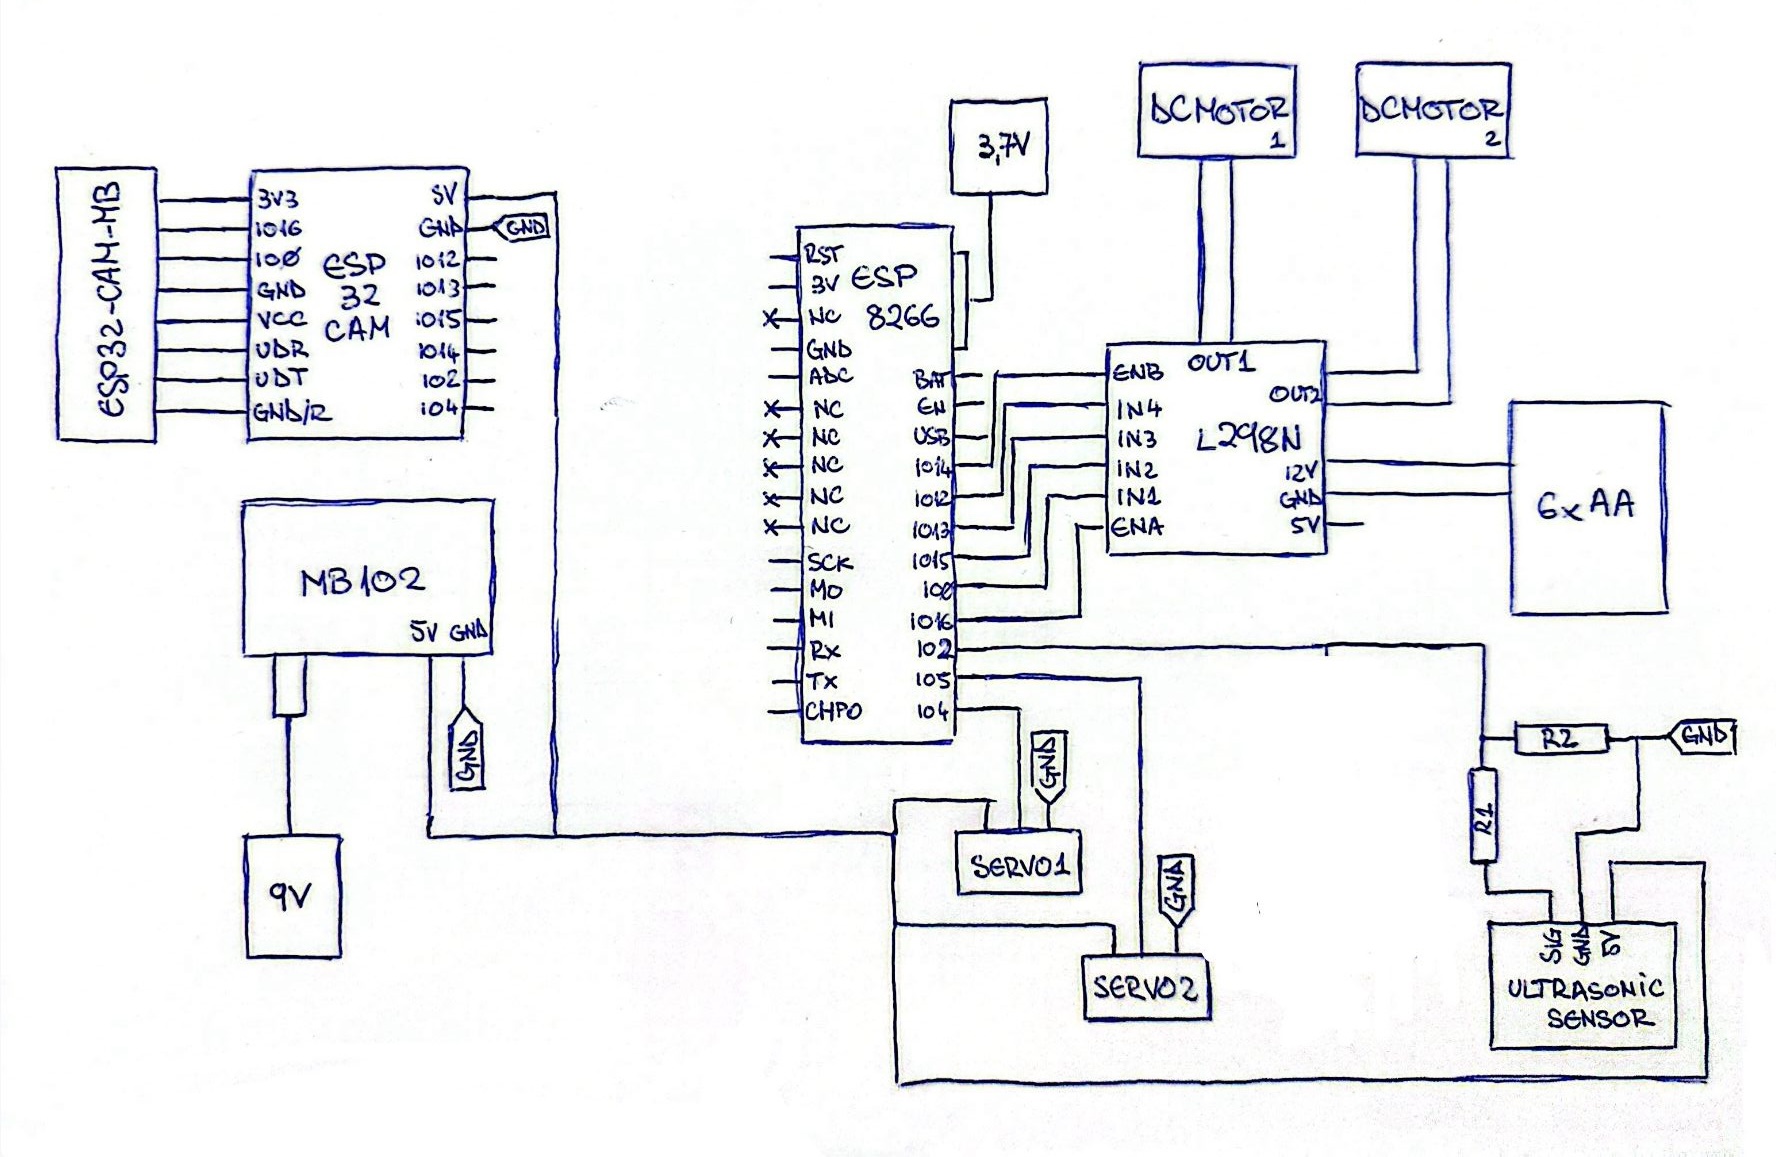 DCMOTOR
1
DCMOTOR
2
3,7V
ESP32-CAM-MB
3V3
IO16
IOØ
GND
VCC
UDR
UDT
GND/R
ESP
32
CAM
5V
GND
IO12
IO13
IO15
IO14
IO2
IO4
GND
RST
3V
NC
GND
ADC
NC
NC
NC
NC
NC
SCK
MO
MI
Rx
Tx
CHPD
ESP
8266
BAT
EN
USB
IO14
IO12
IO13
IO15
IO0
IO16
IO2
IO5
IO4
ENB
IN4
IN3
IN2
IN1
ENA
OUT1
L298N
OUT2
12V
GND
5V
6xAA
MB102
5V GND
GND
9V
GND
SERVO1
GND
SERVO2
R2
GND
R1
SIG
GND
5V
ULTRASONIC
SENSOR